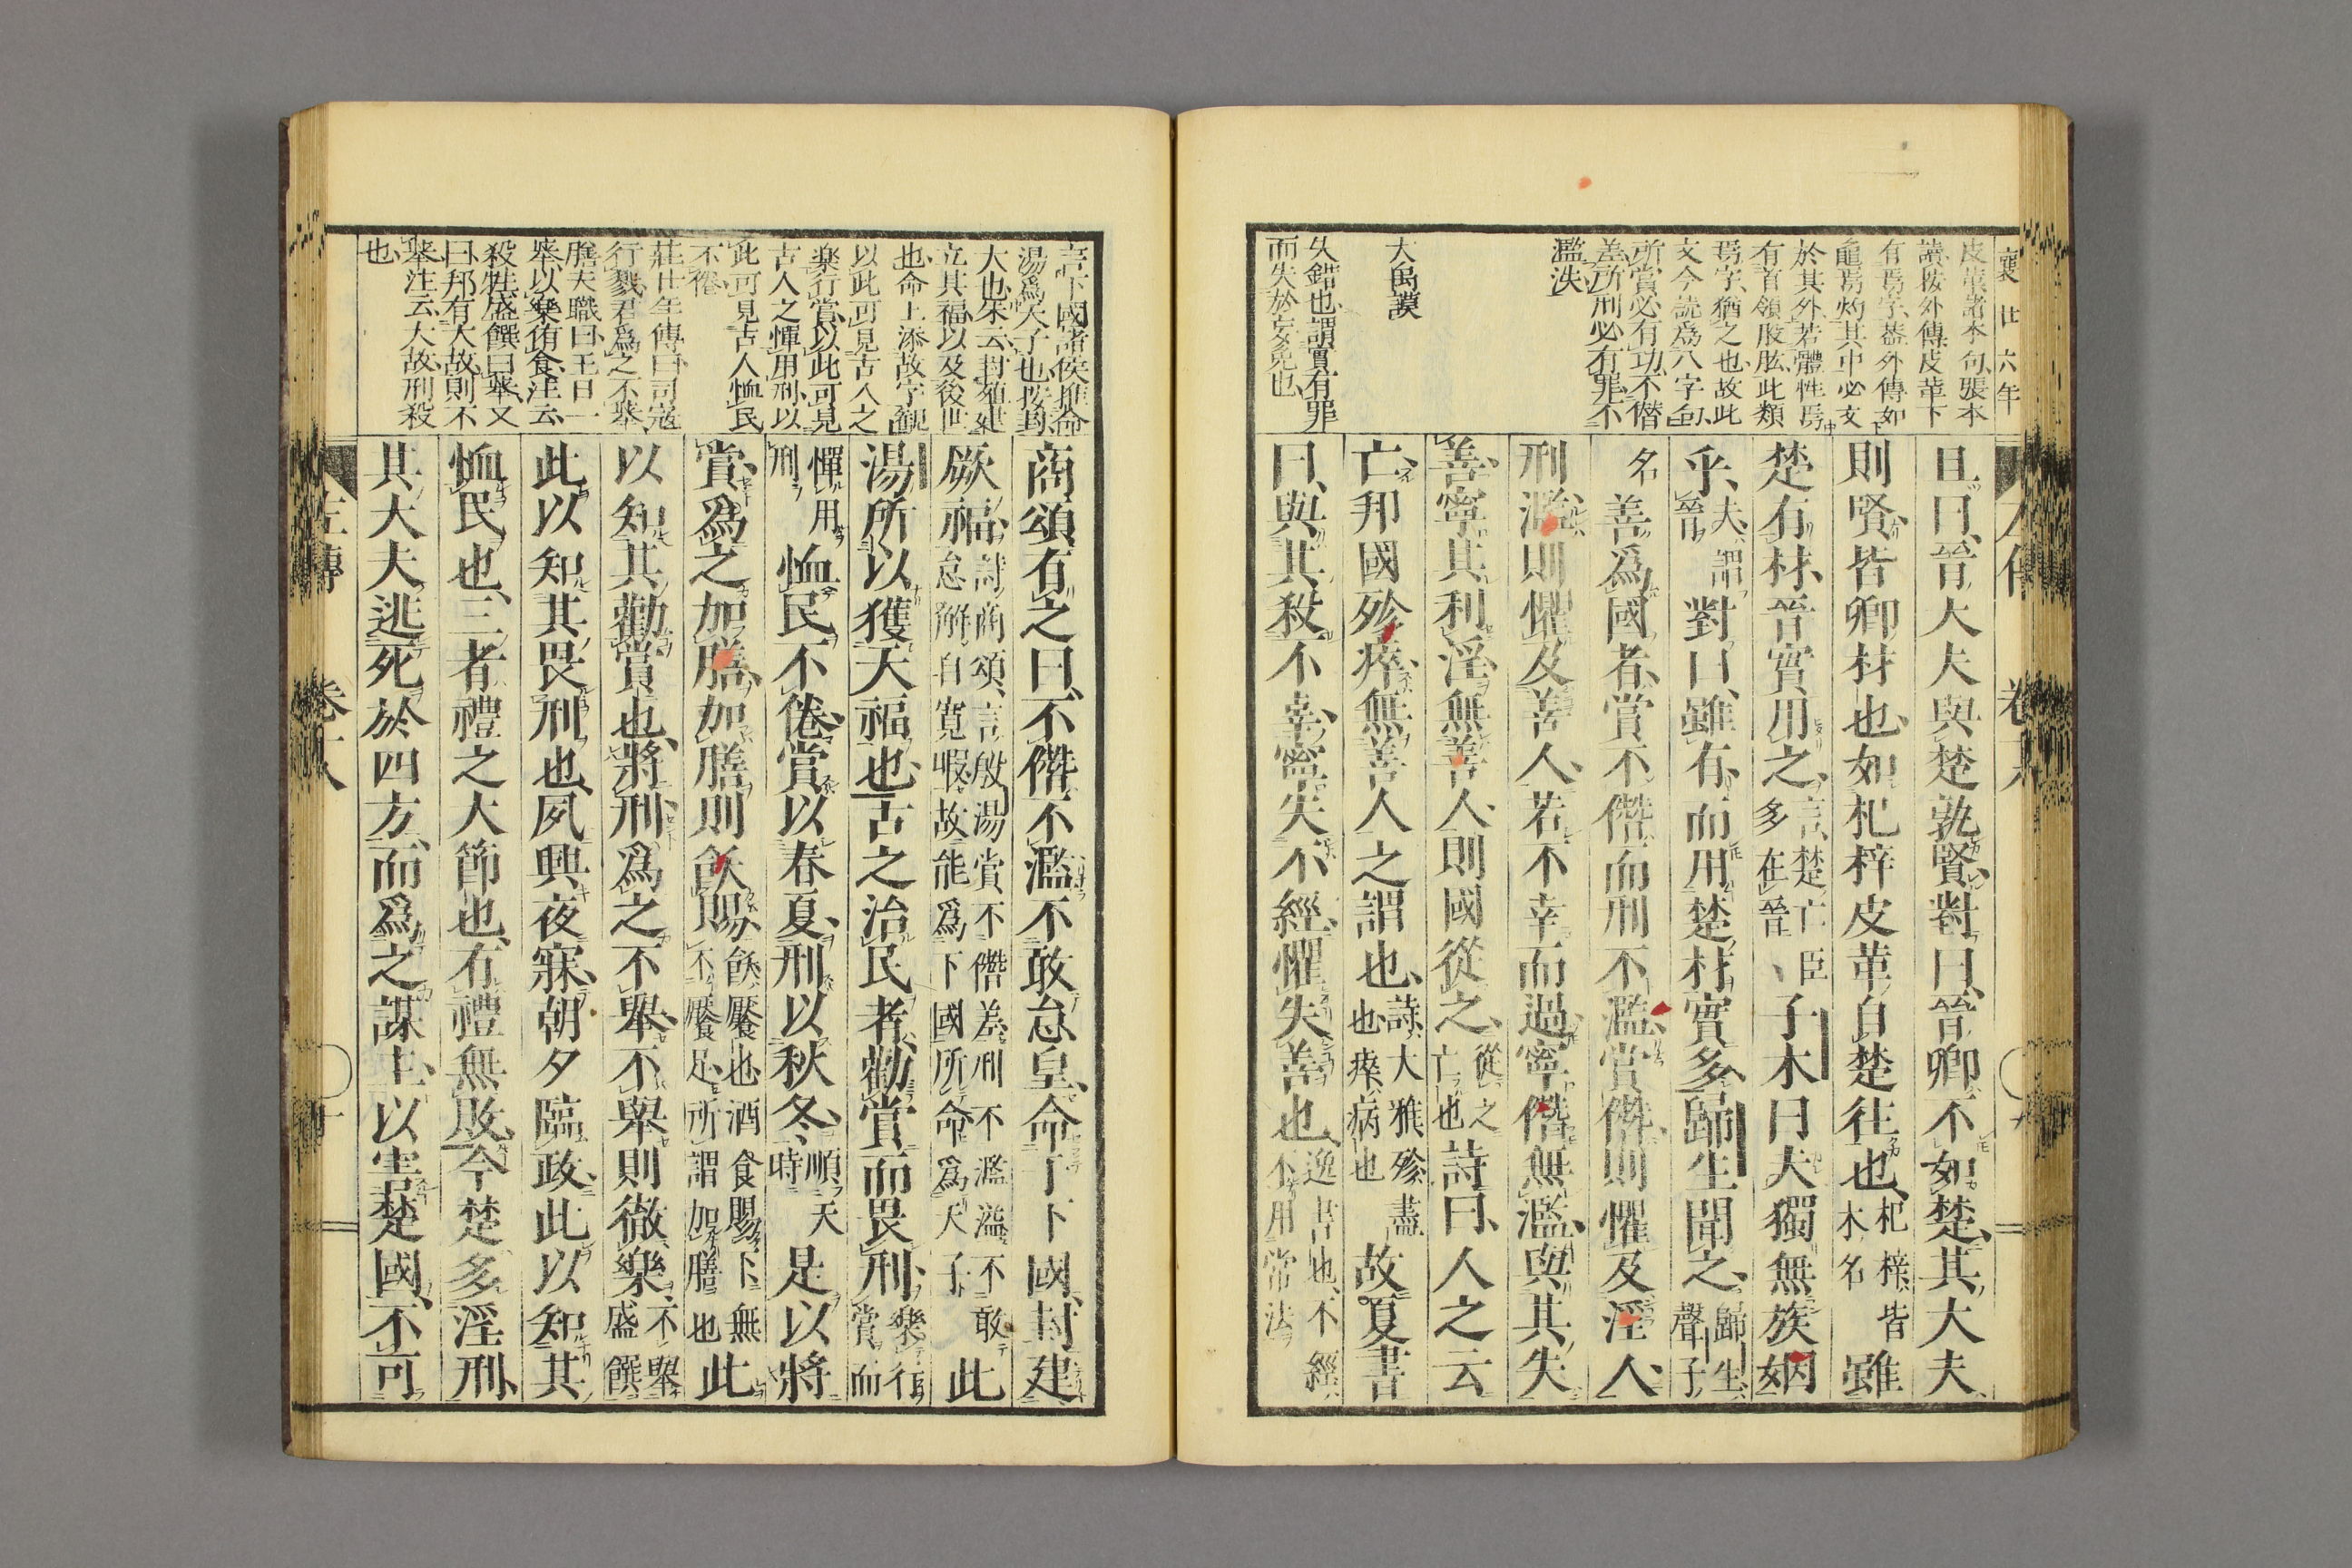 襄廿六年
皮革諸本句張本
讀按外傳皮革下
有焉字葢外傳如
龜焉灼其中必文
於其外若體性焉
有首領股肱此類
焉字猶之也故此
文今読爲八字句
所賞必有功不僭
差所刑必有罪不
濫泆
大禹謨
失錯也謂實有罪
而失於妄免也
且曰、晉大夫與楚孰賢、對曰、晉卿不如楚、其大夫
則賢、皆卿材也、如杞梓皮革、自楚往也、杞梓、皆木名雖
楚有材、晉實用之、言楚亡臣多在晉、子木曰、夫獨無族姻
乎、夫謂晉對曰、雖有、而用楚材實多、歸生聞之、歸生、聲子
名善爲國者、賞不僭而刑不濫、賞僭、則懼及淫人、
刑濫、則懼及善人、若不幸而過、寧僭無濫、與其失
善、寧其利淫、無善人、則國從之、從之亡也詩曰、人之云
亡、邦國殄瘁、無善人之謂也、詩、大雅、殄、盡也、瘁、病也故夏書
曰、與其殺不幸、寧失不經、懼失善也、逸書也、不經、不用常法
言下國諸侯推命
湯爲天子也按封
大也朱云封殖建
立其福以及後世
也命上添故字觀
以此可見古人之
樂行賞以此可見
古人之憚用刑以
此可見古人恤民
不倦
莊廿年傳曰司寇
行戮君爲之不舉
膳夫職曰王日一
舉以樂侑食注云
殺牲盛饌曰舉又
曰邦有大故則不
舉注云大故刑殺
也
商頌有之曰、不僭不濫、不敢怠皇、命于下國、封建
厥福、詩商頌、言殷湯賞不僭差、刑不濫溢、不敢怠解自寬暇、故能爲下國所命爲天子此
湯所以獲天福也、古之治民者、勸賞而畏刑、樂行賞而
憚用刑恤民不倦、賞以春夏、刑以秋冬、順天時是以將
賞、爲之加膳、加膳則飫賜、飫、饜也、酒食賜下、無不饜足、所謂加膳也此
以知其勸賞也、將刑、爲之不舉、不舉則徹樂、不舉盛饌
此以知其畏刑也、夙興夜寐、朝夕臨政、此以知其
恤民也、三者、禮之大節也、有禮無敗、今楚多淫刑、
其大夫逃死於四方、而爲之謀主、以害楚國、不可
左傳 卷十八